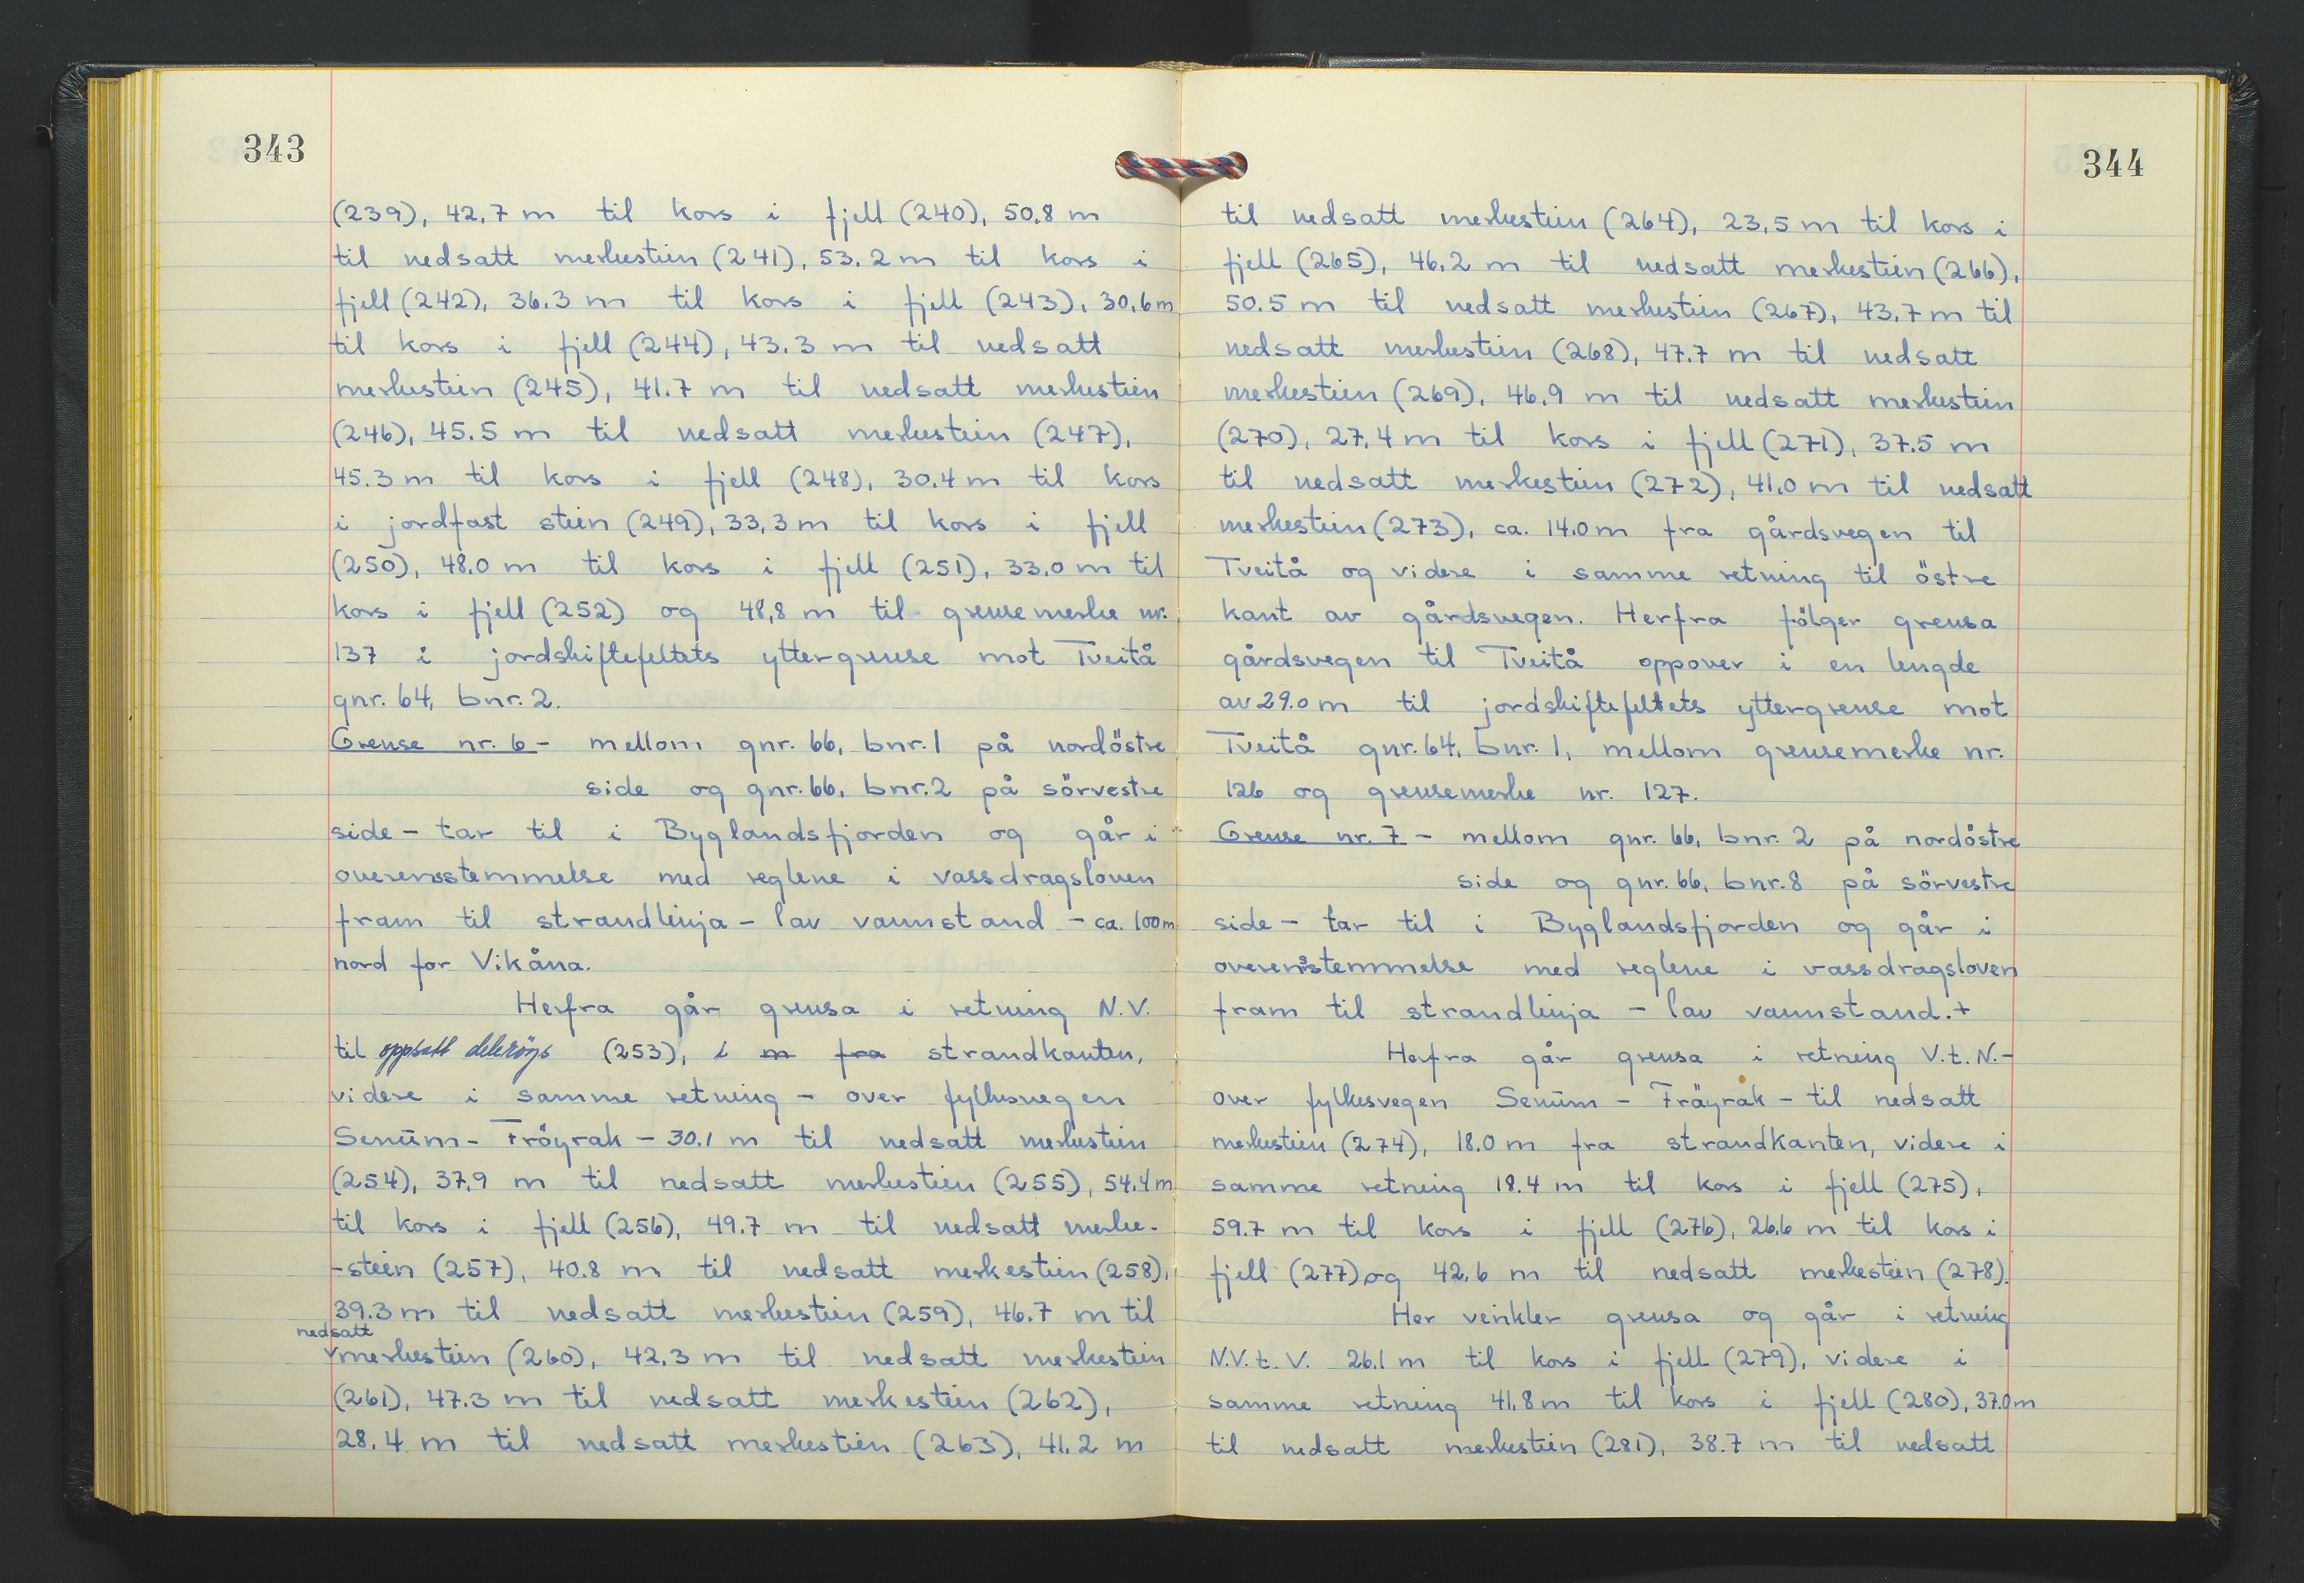 343
(239), 42,7 m til kors i fjell (240), 50.8 m
til nedsatt merkestein (241), 53.2 m til kors i
fjell (242), 36.3 m til kors i fjell (243), 30,6 m
til kors i fjell (244), 43.3 m til nedsatt
merkestein (245), 41.7 m til nedsatt merkestein
(246), 45.5 m til nedsatt merkestein (247),
45.3 m til kors i fjell (248), 30.4 m til kors
i jordfast stein (249), 33,3 m til kors i fjell
(250), 48.0 m til kors i fjell (251), 33.0 m til
kors i fjell (252) og 48,8 m til grensemerke nr.
137 i jordskiftefeltets yttergrense mot Tveitå
gnr. 64, bnr. 2.
Grense nr. 6 - mellom gnr. 66, bnr. 1 på nordöstre
side og gnr. 66, bnr. 2 på sörvestre
side - tar til i Byglandsfjorden og går i
overensstemmelse med reglene i vassdragsloven
fram til strandlinja - lav vannstand - ca. 100 m
nord for Vikåna.
Herfra går grensa i retning N.V.
til oppsatt deleröys (253), i m fra strandkanten,
videre i samme retning - over fylkesvegen
Senum - Fröyrak - 30.1 m til nedsatt merkestein
(254), 37,9 m til nedsatt merkestein (255), 54,4 m
til kors i fjell (256), 49.7 m til nedsatt merke-
-stein (257), 40.8 m til nedsatt merkestein (258),
39.3 m til nedsatt merkestein (259), 46.7 m til
nedsatt
merkestein (260), 42.3 m til nedsatt merkestein
(261), 47.3 m til nedsatt merkestein (262),
28.4 m til nedsatt merkestein (263), 41.2 m
344
til nedsatt merkestein (264), 23,5 m til kors i
fjell (265), 46.2 m til nedsatt merkestein (266),
50.5 m til nedsatt merkestein (267), 43.7 m til
nedsatt merkestein (268), 47.7 m til nedsatt
merkestein (269), 46.9 m til nedsatt merkestein
(270), 27,4 m til kors i fjell (271), 37.5 m
til nedsatt merkestein (272), 41.0 m til nedsatt
merkestein (273), ca. 14.0 m fra gårdsvegen til
Tveitå og videre i samme retning til östre
kant av gårdsvegen. Herfra fölger grensa
gårdsvegen til Tveitå oppover i en lengde
av 29.0 m til jordskiftefeltets yttergrense mot
Tveitå gnr. 64, bnr. 1, mellom grensemerke nr.
126 og grensemerke nr. 127.
Grense nr. 7 - mellom gnr. 66, bnr. 2 på nordöstre
side og gnr. 66, bnr. 8 på sörvestre
side - tar til i Byglandsfjorden og går i
overensstemmelse med reglene i vassdragsloven
fram til strandlinja - lav vannstand. +
Herfra går grensa i retning V.t.N.-
over fylkesvegen Senum - Fröyrak - til nedsatt
merkestein (274), 18.0 m fra strandkanten, videre i
samme retning 18.4 m til kors i fjell (275),
59.7 m til kors i fjell (276), 26.6 m til kors i
fjell (277) og 42.6 m til nedsatt merkestein (278).
Her vinkler grensa og går i retning
N.V.t.V. 26.1 m til kors i fjell (279), videre i
samme retning 41,8 m til kors i fjell (280), 37.0 m
til nedsatt merkestein (281), 38.7 m til nedsatt